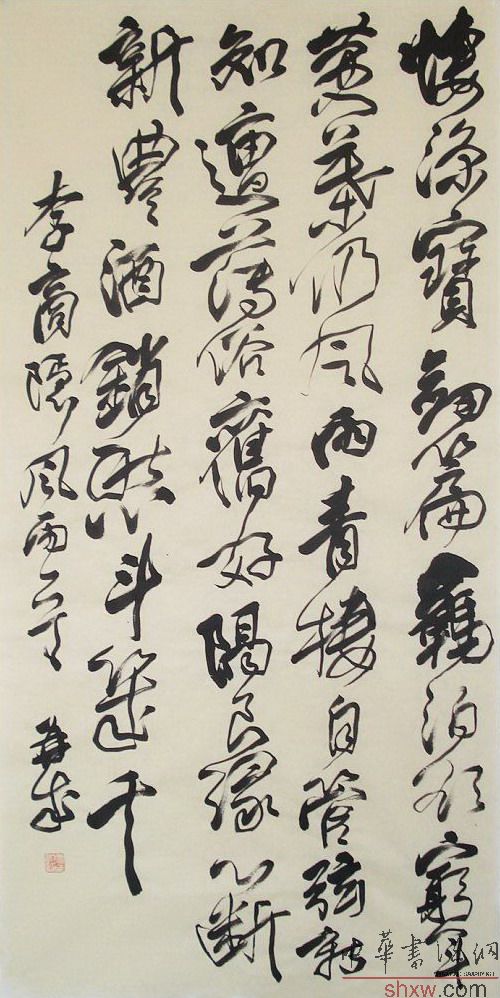 悽涼寶劍篇羈泊欲窮年
黃葉仍風雨青樓自管弦新
知遭薄俗舊好隔良緣心斷
新豐酒銷愁斗幾千
李商隱風雨一首
中華書法網
shxw.com